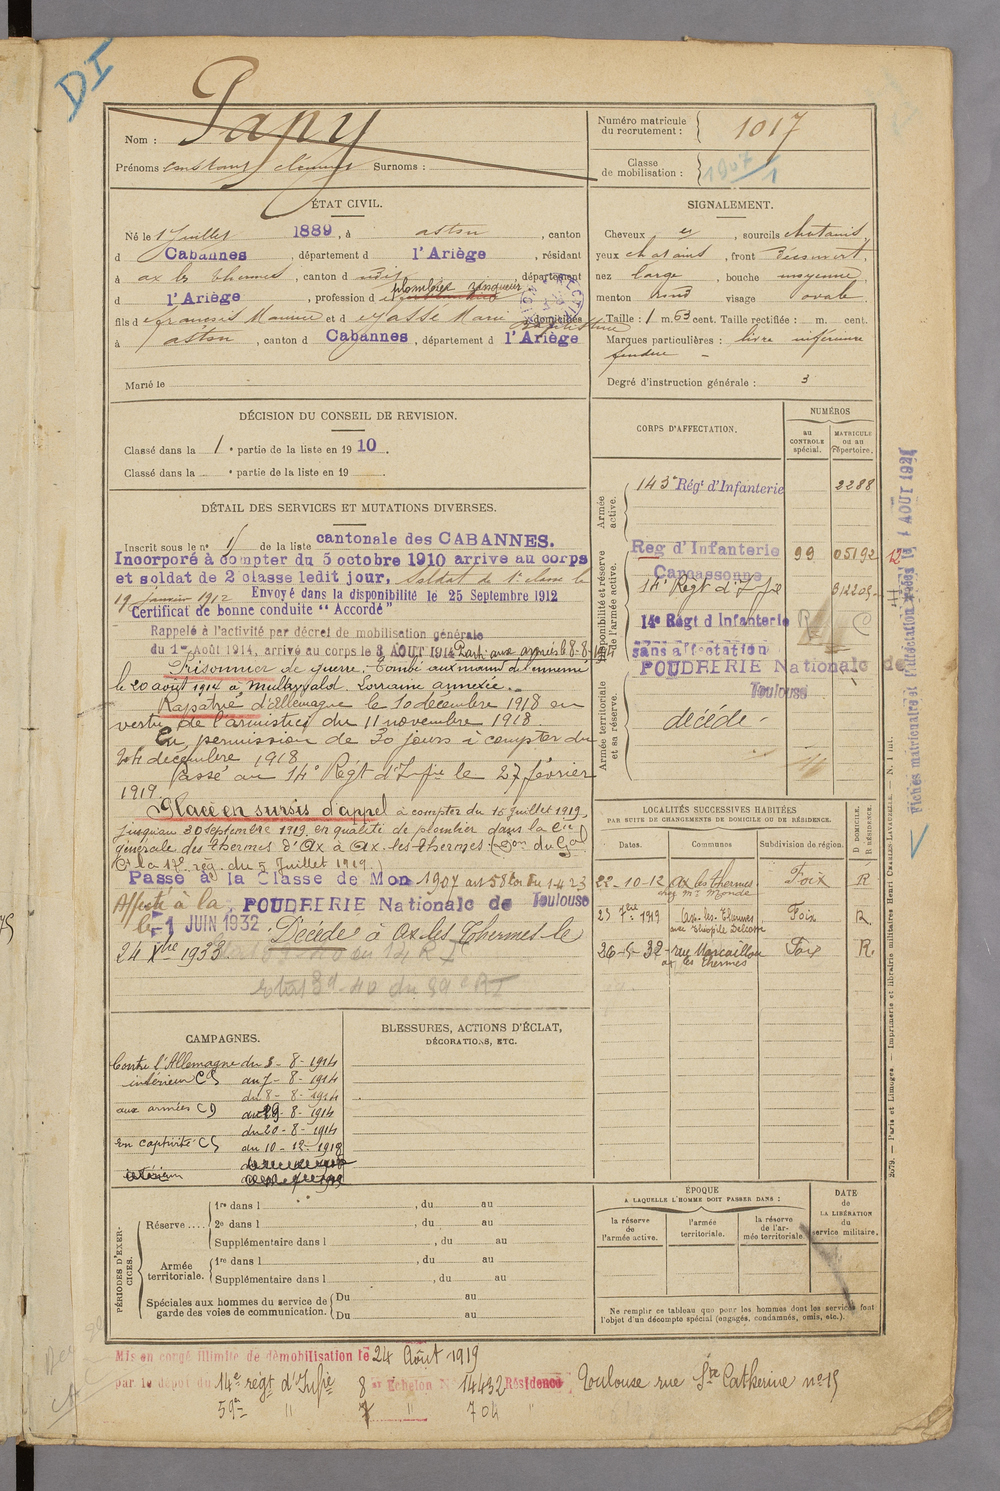 DI
Nom : Papy
Prénoms Constant Surnoms :
Numéro matricule du recrutement : 1017
Classe de mobilisation : 1907
ÉTAT CIVIL.
Né le 1 Juillet 1889, à aston, canton
d Cabannes, département d l'Ariège, résidant
à ax les thermes, canton d dudit, département
d l'Ariège, profession d plombier zingueur
fils d François Maurice et d Marie domiciliés
à aston, canton d Cabannes, département d l'Ariège
Marié le
SIGNALEMENT.
Cheveux et, sourcils chatains
yeux chatains, front découvert,
nez large, bouche moyenne,
menton rond visage ovale
Taille : 1 m. 63 cent. Taille rectifiée : m. cent.
Marques particulières : lèvre inférieure
fendue -
Degré d'instruction générale : 3
DÉCISION DU CONSEIL DE REVISION.
Classé dans la 1e partie de la liste en 1910.
Classé dans la e partie de la liste en 19
CORPS D'AFFECTATION.
NUMÉROS
au CONTROLE spécial.
MATRICULE ou au Répertoire.
Armée active.
143e Régt d'Infanterie 2288
Disponibilité et réserve de l'armée active.
Reg d'Infanterie Carcassonne 99 05192
14e Régt d'Infie
14e Régt d'Infanterie
sans affectation
POUDRERIE Nationale de Toulouse
Armée territoriale et sa réserve.
décédé -
DÉTAIL DES SERVICES ET MUTATIONS DIVERSES.
Inscrit sous le n° 1 de la liste cantonale des CABANNES.
Incorporé à compter du 5 octobre 1910 arrive au corps
et soldat de 2 classe ledit jour, soldat de 1e classe le
19 Janvier 1912 Envoyé dans la disponibilité le 25 Septembre 1912
Certificat de bonne conduite "Accordé"
Rappelé à l'activité par décret de mobilisation générale
du 1er Août 1914, arrivé au corps le 3 AOUT 1914 Parti aux armées le 8-8-14
Prisonnier de guerre. Tombé aux mains de l'ennemi
le 20 août 1914 à Lorraine annexée.
Rapatrié d'Allemagne le 10 décembre 1918 en
vertu de l'armistice du 11 novembre 1918
En permission de 30 jours à compter du
décembre 1918
Passé au 14e Régt d'Infie le 27 février
1919.
Placé en sursis d'appel à compter du 15 juillet 1919
jusqu'au 30 septembre 1919 en qualité de plombier dans la Cie
générale des thermes d'Ax à Ax-les-thermes (Don du Gal
Ct la 17e rég. du 5 Juillet 1919.)
Passé à la Classe de Mon 1907 art 58 loi du 1-4-23
Affecté à la POUDRERIE Nationale de Toulouse
le 1 JUIN 1932. Décédé à Ax-les-Thermes le
24 Xbre 1933
LOCALITÉS SUCCESSIVES HABITÉES
PAR SUITE DE CHANGEMENTS DE DOMICILE OU DE RÉSIDENCE.
Dates. Communes Subdivision de région. D. DOMICILE. R. RÉSIDENCE.
22-10-12 Ax les thermes Foix R
chez Mr Monde
23 7bre 1919 Ax-les-Thermes Foix R.
26-5-32 rue Marcaillou Foix R.
ax les thermes
CAMPAGNES.
Contre l'Allemagne du 3-8-1914
intérieur CS au 7-8-1914
du 8-8-1914
aux armées CD au 19-8-1914
du 20-8-1914
en captivité CS au 10-12-1918
intérieur
BLESSURES, ACTIONS D'ÉCLAT,
DÉCORATIONS, ETC.
PÉRIODES D'EXERCICES.
Réserve.... 1re dans l , du au
2e dans l , du au
Supplémentaire dans l , du au
Armée territoriale. 1re dans l , du au
Supplémentaire dans l , du au
Spéciales aux hommes du service de garde des voies de communication. Du au
Du au
ÉPOQUE
A LAQUELLE L'HOMME DOIT PASSER DANS :
la réserve de l'armée active.
l'armée territoriale.
la réserve de l'armée territoriale.
DATE DE LA LIBÉRATION du service militaire.
Ne remplir ce tableau que pour les hommes dont les services font
l'objet d'un décompte spécial (engagés, condamnés, omis, etc.).
Mis en congé illimité de démobilisation le 24 Août 1919
par le dépôt du 14e régt d'Infie 8 e Echelon N° 14432 Résidence Toulouse rue Ste Catherine n° 15
59e " 7 " 704 "
2679. — Paris et Limoges. — Imprimerie et librairie militaires Henri CHARLES-LAVAUZELLE.